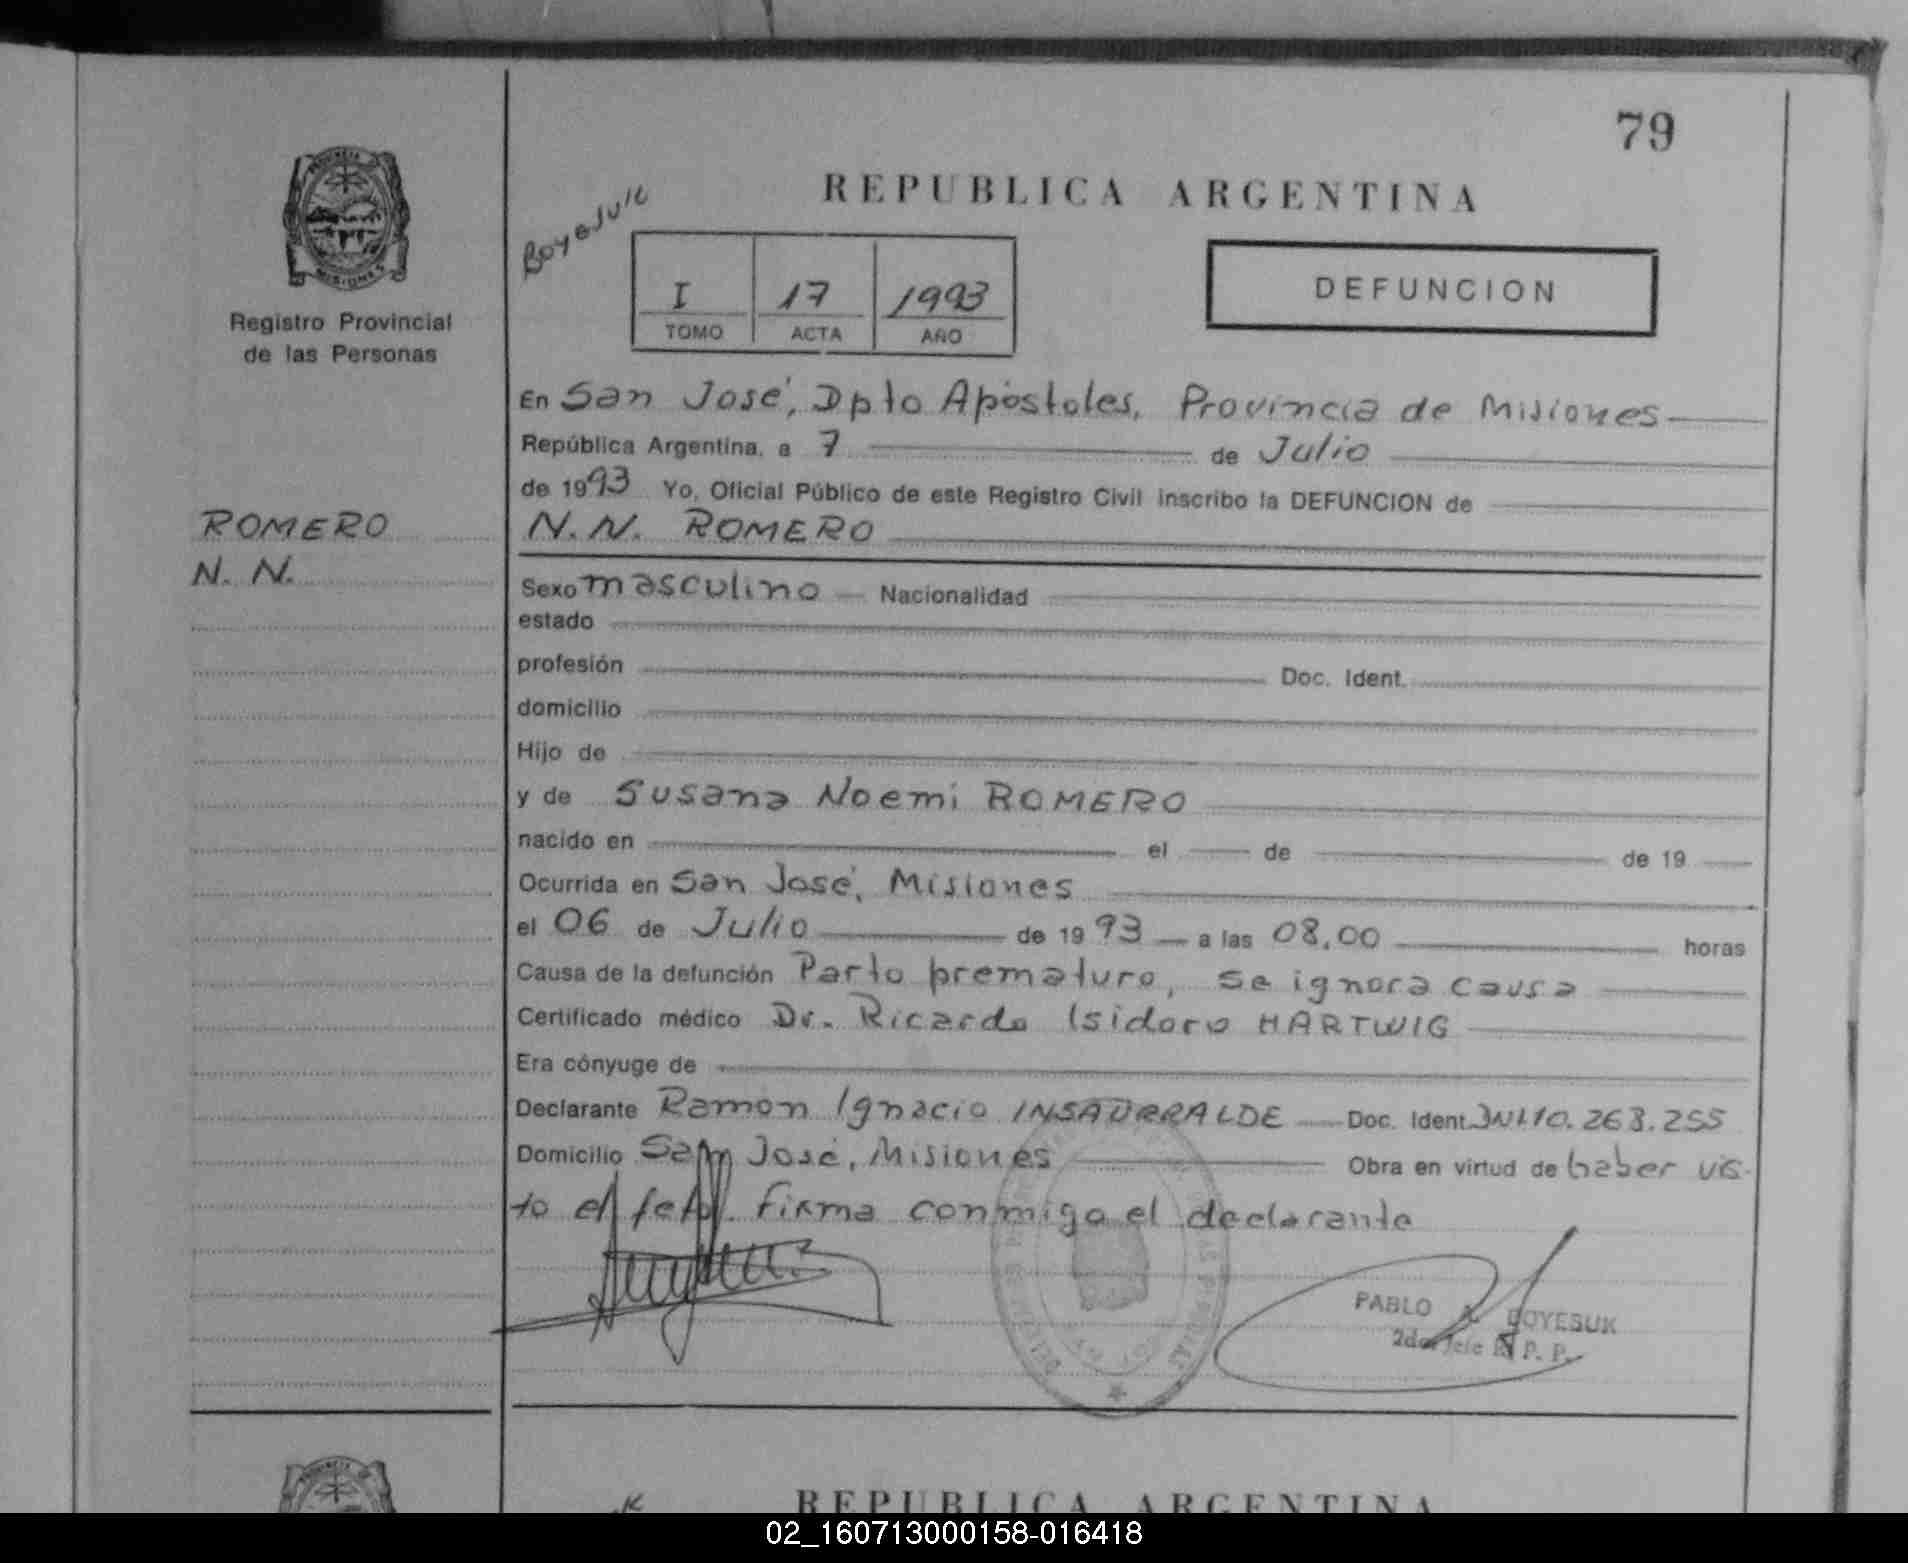 79
REPUBLICA ARGENTINA
Boyesuk
I 17 1993
TOMO ACTA AÑO
DEFUNCION
PROVINCIA DE
MISIONES
Registro Provincial
de las Personas
ROMERO
N. N.
En San José, Dpto Apóstoles, Provincia de Misiones
República Argentina, a 7 de Julio
de 1993 Yo, Oficial Público de este Registro Civil inscribo la DEFUNCION de
N. N. ROMERO
Sexo masculino Nacionalidad
estado
profesión Doc. Ident.
domicilio
Hijo de
y de Susana Noemi ROMERO
nacido en el de de 19
Ocurrida en San José, Misiones
el 06 de Julio de 1993 a las 08,00 horas
Causa de la defunción Parto prematuro, se ignora causa
Certificado médico Dr. Ricardo Isidoro HARTWIG
Era cónyuge de
Declarante Ramón Ignacio INSAURRALDE Doc. Ident. DNI. 10.263.255
Domicilio San José, Misiones Obra en virtud de haber vis-
to el feto. Firma conmigo el declarante
PABLO A. BOYESUK
2do. Jefe R. P. P.
REPUBLICA ARGENTINA
02_160713000158-016418